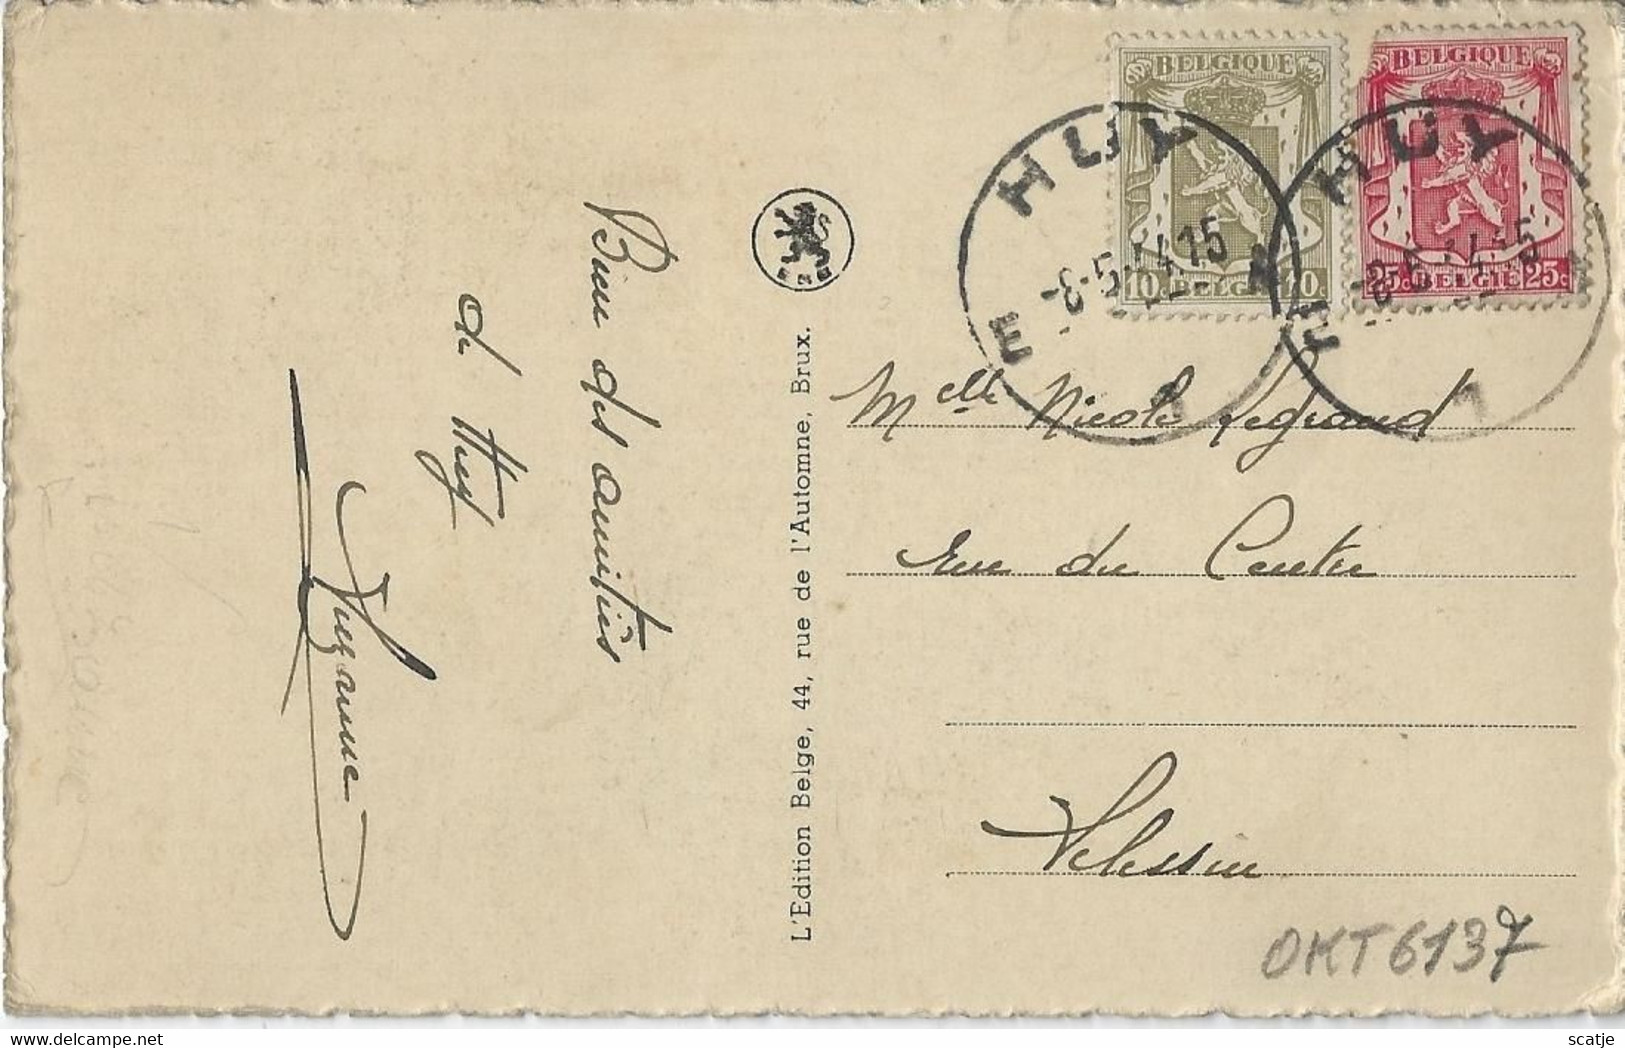 Bien des amitiés
de Huy
Suzanne
L'Edition Belge, 44, rue de l'Automne, Brux.
BELGIQUE
10c BELGIË 10c
BELGIQUE
25c BELGIË 25c
HUY
-8-5- 14-15
E 1 A
HUY
-8-5- 14-15
E 1 A
Melle Nicole Legrand
Rue du Centre
Velessin
OKT6137
Delcampe.net
scatje